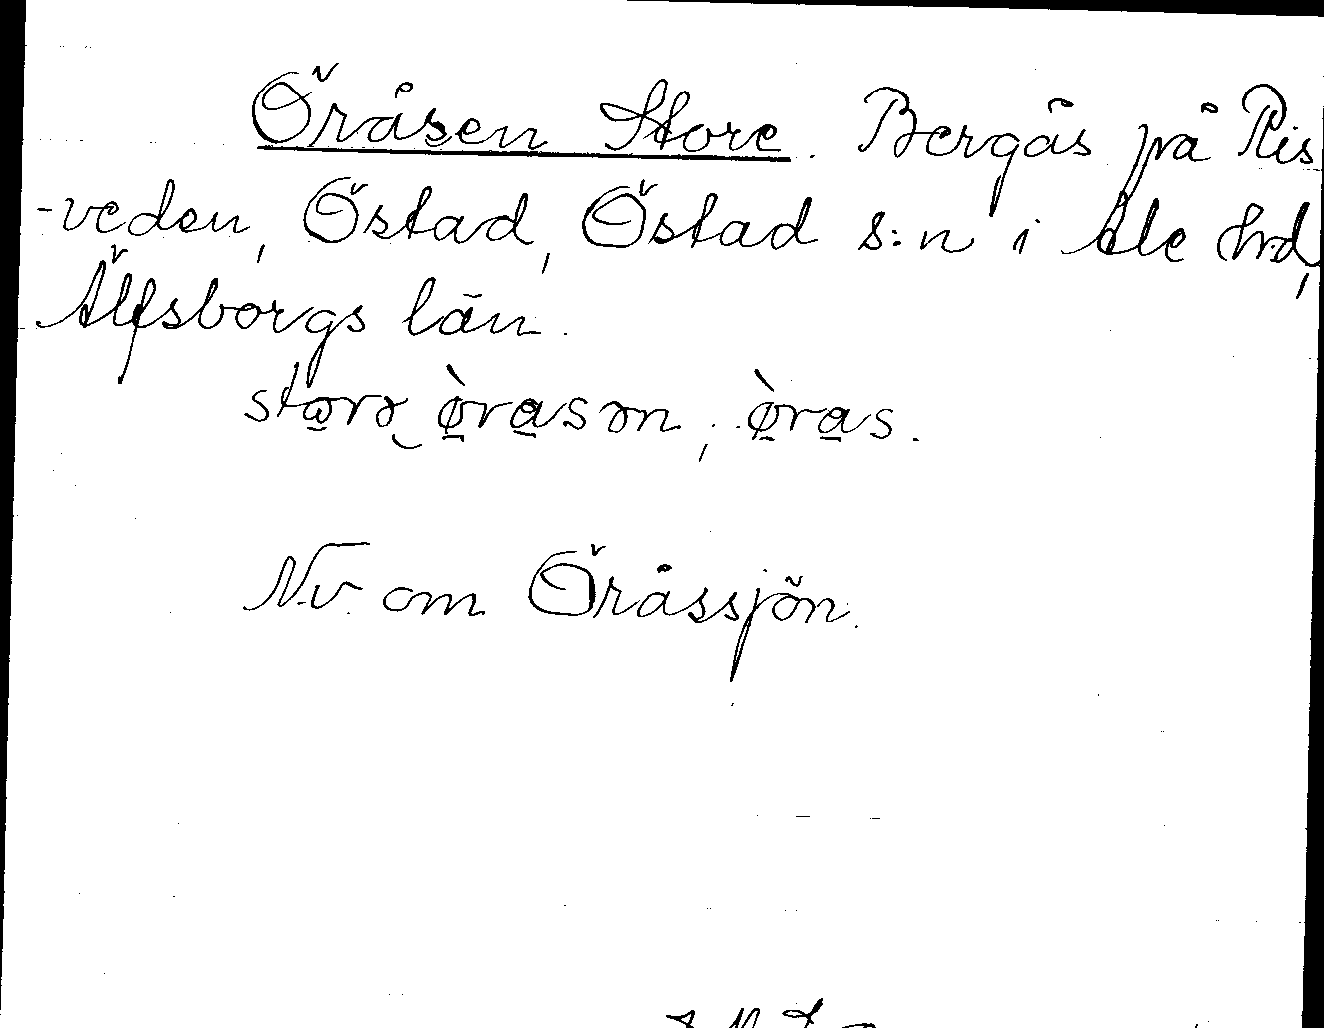 Öråsen Store. Bergås på Ris
-veden, Östad, Östad s:n i Ale hrd,
Älfsborgs län.
storə òrasən, òras.
Nv. om Öråssjön.